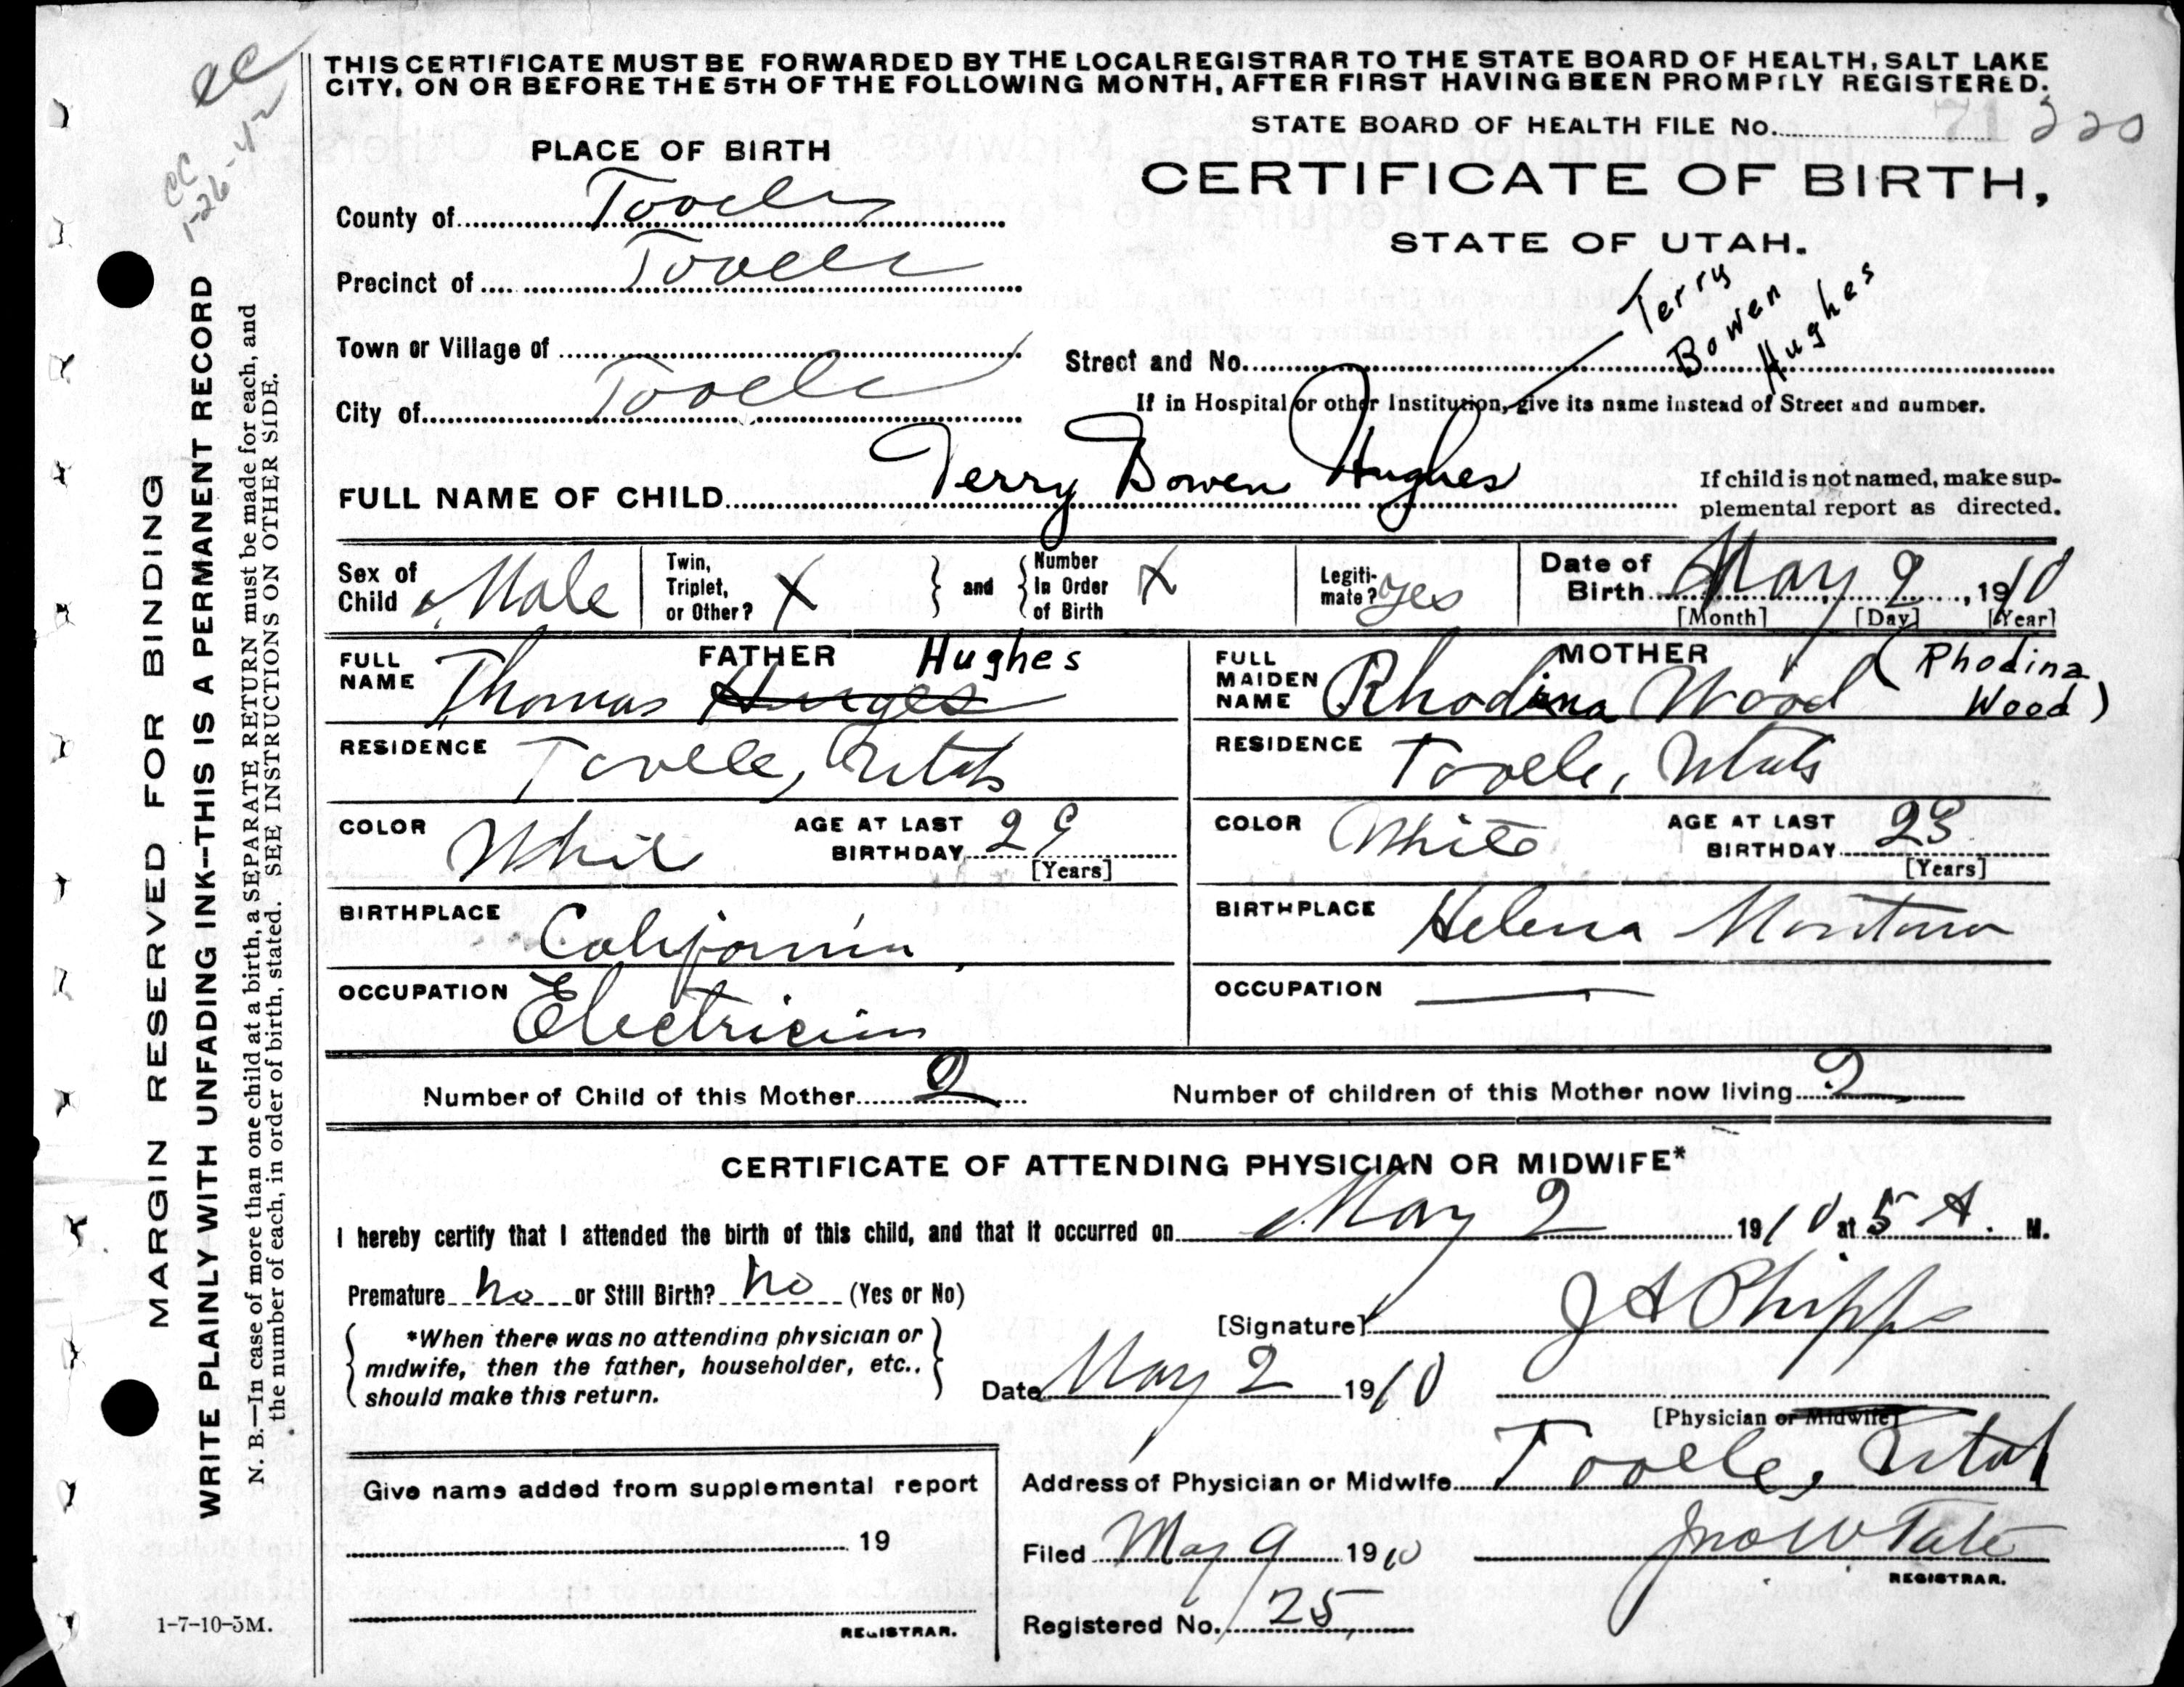 THIS CERTIFICATE MUST BE FORWARDED BY THE LOCAL REGISTRAR TO THE STATE BOARD OF HEALTH, SALT LAKE
CITY, ON OR BEFORE THE 5TH OF THE FOLLOWING MONTH, AFTER FIRST HAVING BEEN PROMPTLY REGISTERED.
CC
CC
1-26-42
STATE BOARD OF HEALTH FILE No. 71 220
PLACE OF BIRTH
CERTIFICATE OF BIRTH,
STATE OF UTAH.
County of Tooele
Precinct of Tooele
Town or Village of
City of Tooele
Street and No.
Terry
Bowen
Hughes
If in Hospital or other Institution, give its name instead of Street and number.
FULL NAME OF CHILD Terry Bowen Hughes
If child is not named, make sup-
plemental report as directed.
Sex of Child Male
Twin, Triplet, or Other? X
and Number in Order of Birth X
Legiti-mate? yes
Date of Birth May 2, 1910
[Month] [Day] [Year]
FATHER
FULL NAME Thomas Hunges Hughes
RESIDENCE Tooele, Utah
COLOR White
AGE AT LAST BIRTHDAY 29
[Years]
BIRTHPLACE California
OCCUPATION Electrician
MOTHER
FULL MAIDEN NAME Rhodina Wood (Rhodina
Wood)
RESIDENCE Tooele, Utah
COLOR White
AGE AT LAST BIRTHDAY 23
[Years]
BIRTHPLACE Helena Montana
OCCUPATION
Number of Child of this Mother 2
Number of children of this Mother now living 2
CERTIFICATE OF ATTENDING PHYSICIAN OR MIDWIFE*
I hereby certify that I attended the birth of this child, and that it occurred on May 2 1910 at 5 A. M.
Premature no or Still Birth? no (Yes or No)
*When there was no attending physician or
midwife, then the father, householder, etc.,
should make this return.
[Signature] J A Phipps
Date May 2 1910
[Physician or Midwife]
Address of Physician or Midwife Tooele, Utah
Give name added from supplemental report
19
REGISTRAR.
Filed May 9 1910
Jno W Tate
REGISTRAR.
Registered No. 25
MARGIN RESERVED FOR BINDING
WRITE PLAINLY WITH UNFADING INK--THIS IS A PERMANENT RECORD
N. B.—In case of more than one child at a birth, a SEPARATE RETURN must be made for each, and
the number of each, in order of birth, stated. SEE INSTRUCTIONS ON OTHER SIDE.
1-7-10-5M.